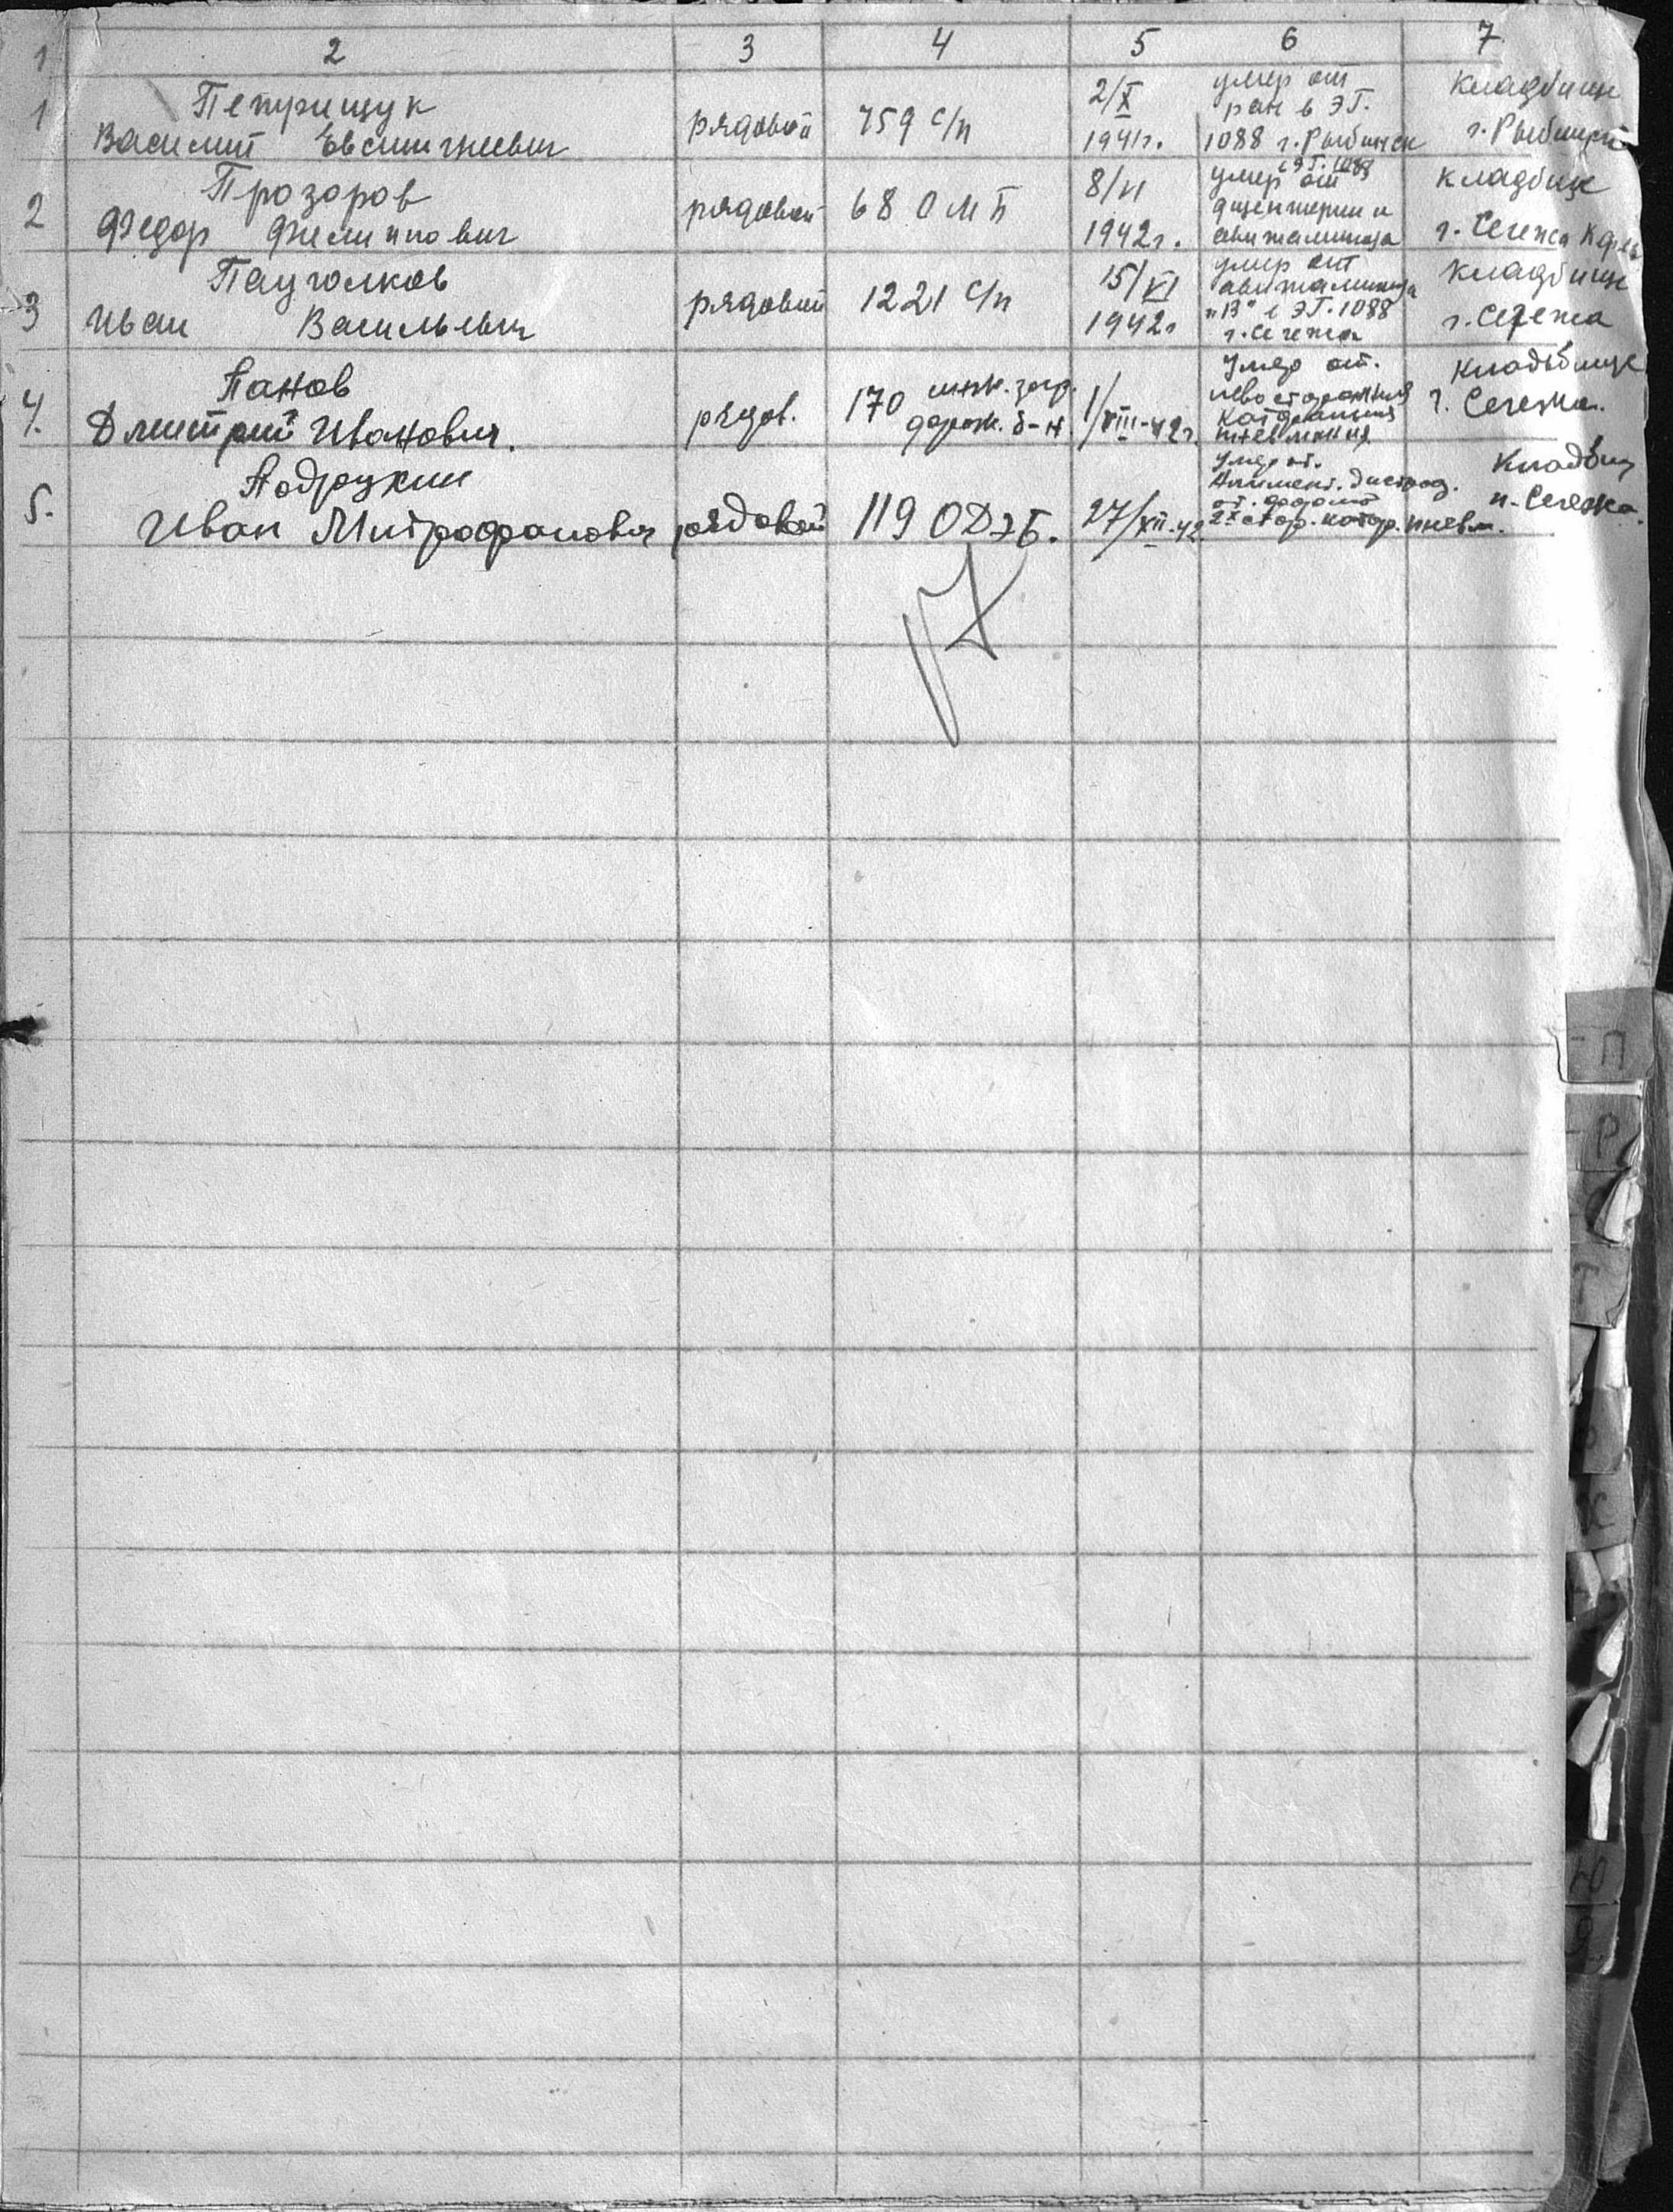 1 2 3 4 5 6 7
1 Петрищук
Василий Евстигнеевич
рядовой
759 с/п
2/X
1941г.
умер от
ран в ЭГ.
1088 г. Рыбинск
Кладбище
г. Рыбинск
2 Прозоров
Федор Филиппович
рядовой
68 ОМБ
8/VI
1942г.
умер от ЭГ. 1088
дизентерии и
авитаминоза
кладбище
г. Сегежа
3
Иван Васильевич
рядовой
1221 с/п
15/VI
1942г
умер от
авитаминоза
"В" в ЭГ. 1088
г. Сегежа
кладбище
г. Сегежа
4. Панов
Дмитрий Иванович.
рядов.
170 инж. загр.
дорож. б-н
1/VIII-42г.
Умер от.
левосторонняя
катаральная
пневмония
Кладбище
г. Сегежа.
5.
Иван Митрофанович
рядовой
119 ОДЭБ.
27/XII-42.
Умер от.
Алимент. дистроф.
2х стор. катар. пневм.
Кладбищ
п. Сегежа.
П
Р
Т
Ю
Я